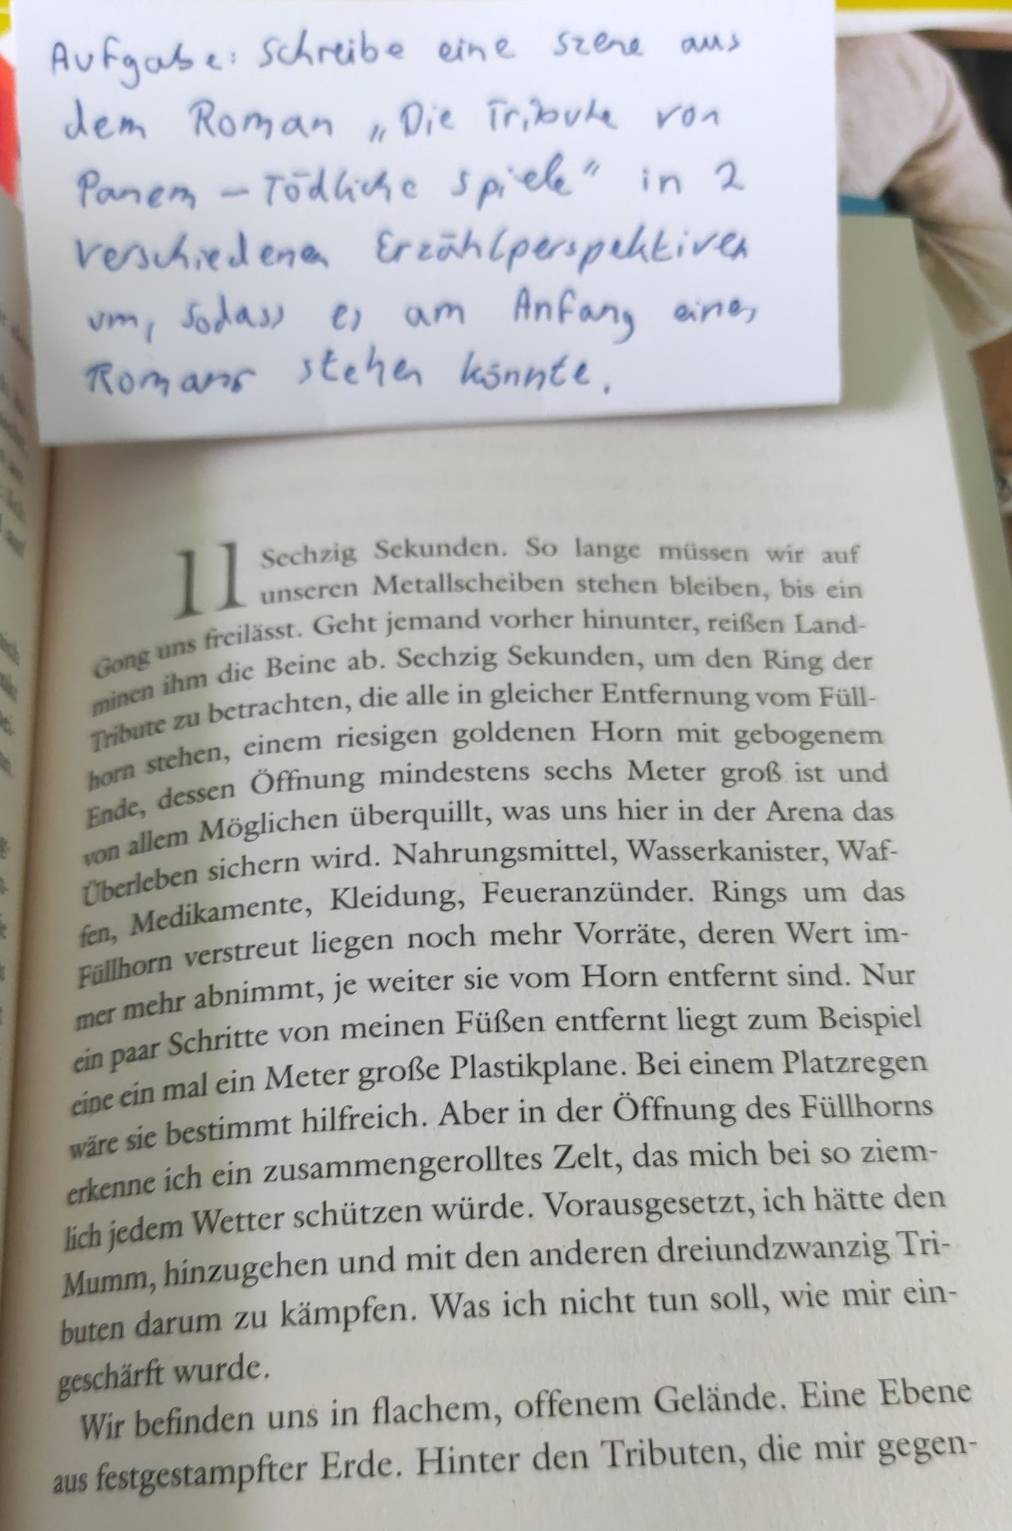 Aufgabe: Schreibe eine szene aus
dem Roman „Die Tribute von
Panem – Tödliche Spiele" in 2
verschiedenen Erzählperspektiven
um, sodass es am Anfang eines
Romans stehen könnte.
11 Sechzig Sekunden. So lange müssen wir auf
unseren Metallscheiben stehen bleiben, bis ein
Gong uns freilässt. Geht jemand vorher hinunter, reißen Land-
minen ihm die Beine ab. Sechzig Sekunden, um den Ring der
Tribute zu betrachten, die alle in gleicher Entfernung vom Füll-
horn stehen, einem riesigen goldenen Horn mit gebogenem
Ende, dessen Öffnung mindestens sechs Meter groß ist und
von allem Möglichen überquillt, was uns hier in der Arena das
Überleben sichern wird. Nahrungsmittel, Wasserkanister, Waf-
fen, Medikamente, Kleidung, Feueranzünder. Rings um das
Füllhorn verstreut liegen noch mehr Vorräte, deren Wert im-
mer mehr abnimmt, je weiter sie vom Horn entfernt sind. Nur
ein paar Schritte von meinen Füßen entfernt liegt zum Beispiel
eine ein mal ein Meter große Plastikplane. Bei einem Platzregen
wäre sie bestimmt hilfreich. Aber in der Öffnung des Füllhorns
erkenne ich ein zusammengerolltes Zelt, das mich bei so ziem-
lich jedem Wetter schützen würde. Vorausgesetzt, ich hätte den
Mumm, hinzugehen und mit den anderen dreiundzwanzig Tri-
buten darum zu kämpfen. Was ich nicht tun soll, wie mir ein-
geschärft wurde.
Wir befinden uns in flachem, offenem Gelände. Eine Ebene
aus festgestampfter Erde. Hinter den Tributen, die mir gegen-